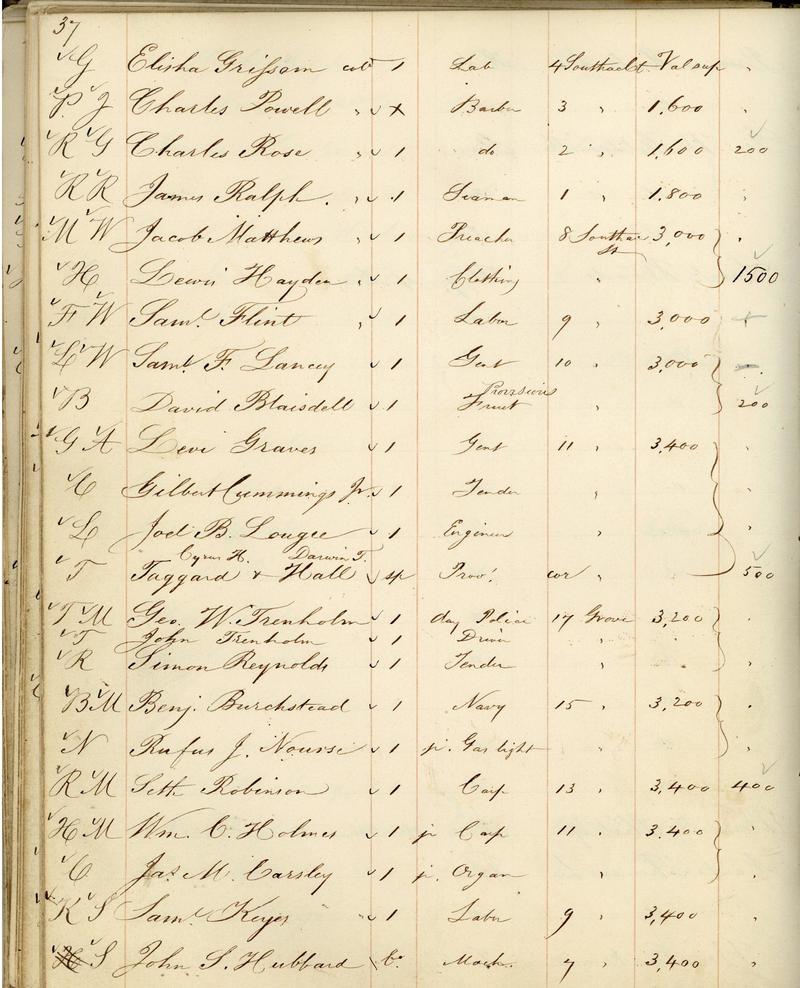 37
G Elisha Grissom col 1 Lab 4 Southac St. Val sup "
P J Charles Powell " x Barber 3 " 1,600 "
R G Charles Rose " 1 do 2 " 1,600 200
R R James Ralph. " 1 Seaman 1 " 1,800 "
M W Jacob Matthews " 1 Preacher 8 Southac St 3,000 "
H Lewis Hayden " 1 Clothing " 1500
F W Saml. Flint " 1 Labor 9 " 3,000
L W Saml. F. Lancey 1 Gent 10 " 3,000
Provisions
B David Blaisdell 1 Fruit " 200
G A Levi Graves 1 Gent 11 " 3,400 "
C Gilbert Cummings Jr. 1 Tender " "
L Joel B. Lougee 1 Engineer " "
Cyrus H. Darwin T.
T Taggard & Hall sp Prov. cor " 500
T M Geo. W. Trenholm 1 day Police 17 Grove 3,200 "
T John Trenholm 1 Driver "
R Simon Reynolds 1 Tender " "
B M Benj. Burchstead 1 Navy 15 " 3,200 "
N Rufus J. Nourse 1 jr. Gas light " "
R M Seth Robinson 1 Carp 13 " 3,400 400
H M Wm. C. Holmes 1 jr Carp 11 " 3,400 "
C Jas. M. Carsley 1 jr. Organ " "
K S Saml. Keyes " 1 Labor 9 " 3,400 "
H S John S. Hubbard Mach. 7 " 3,400 "